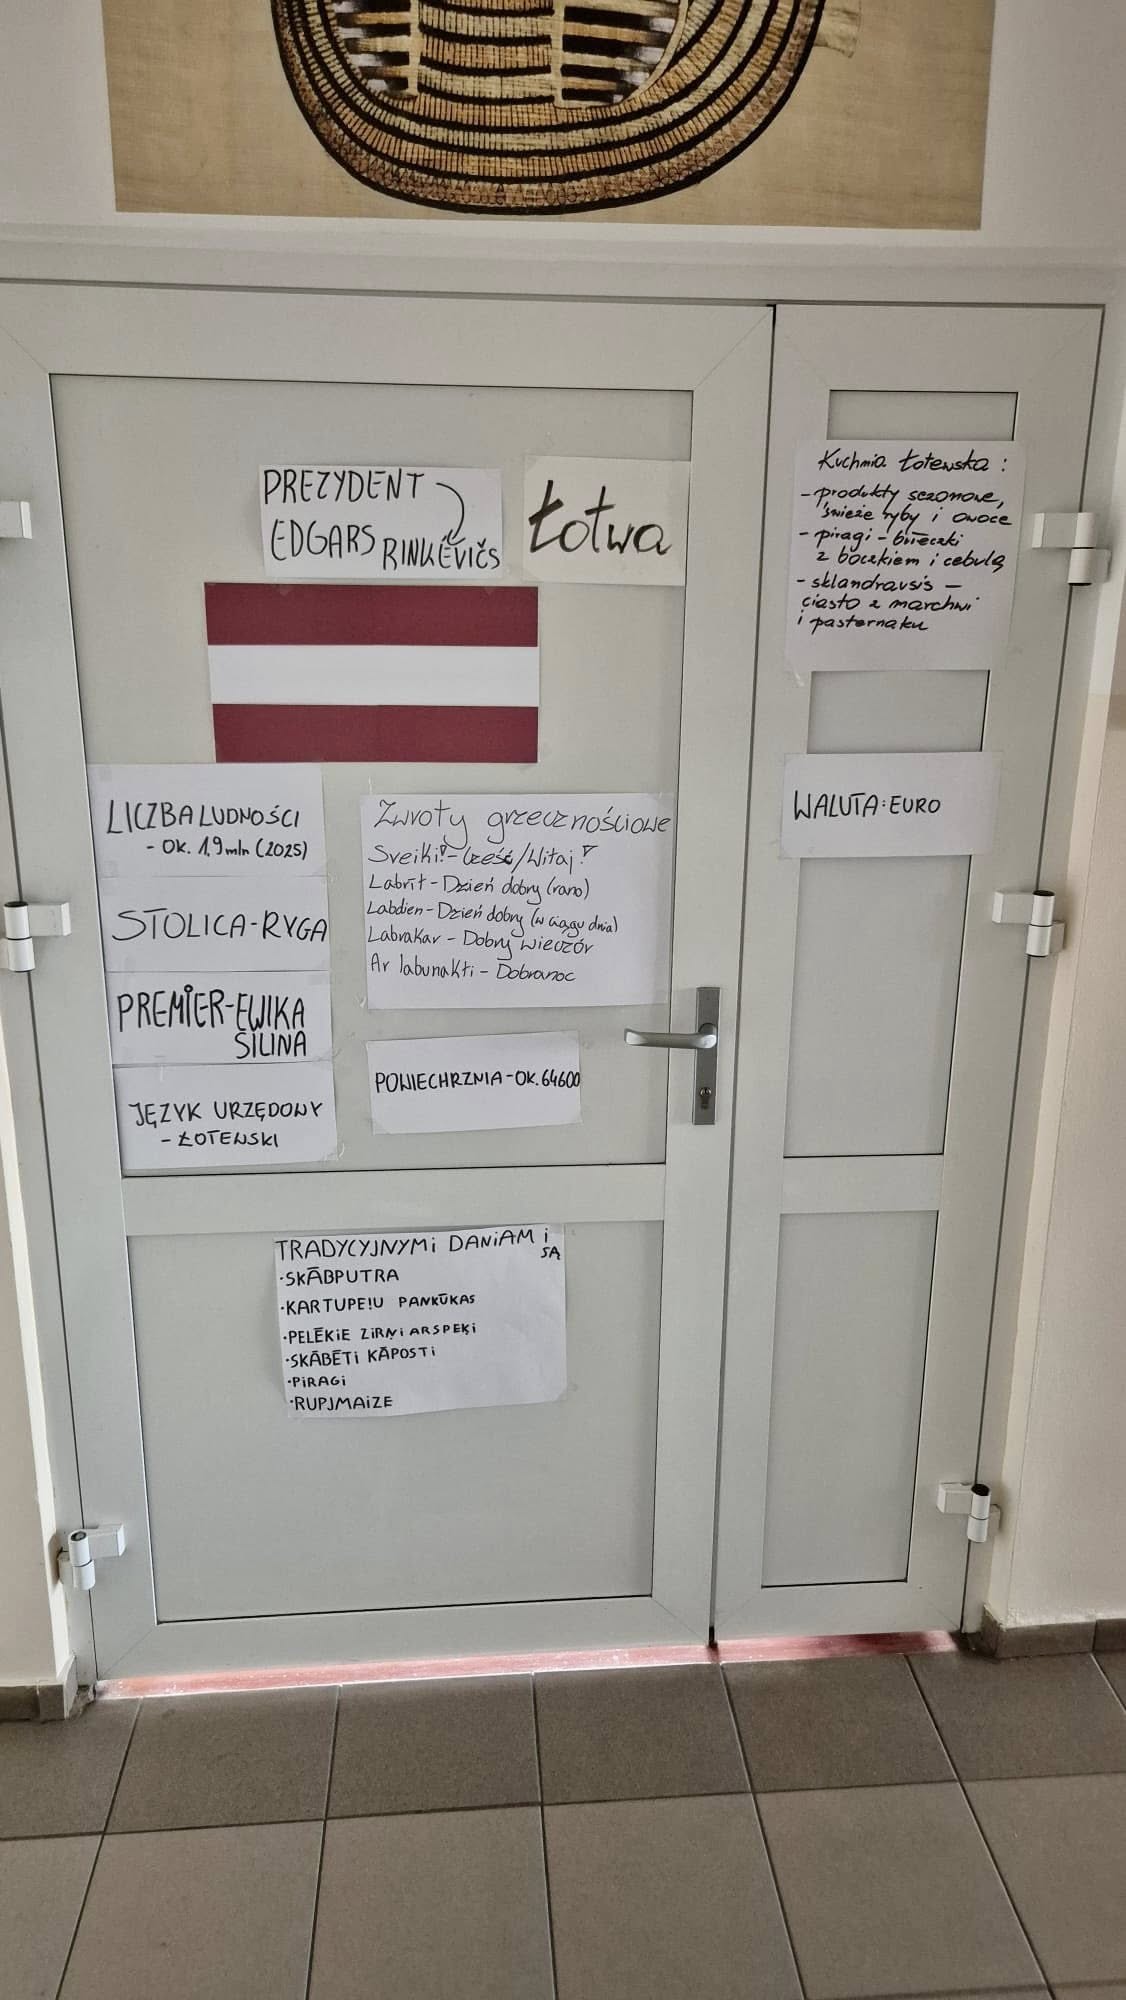 PREZYDENT
EDGARS RINKĒVIČS
Łotwa
LICZBA LUDNOŚCI
- OK. 1,9 mln (2025)
STOLICA-RYGA
PREMIER-EWIKA
SILINA
JĘZYK URZĘDOWY
- ŁOTEWSKI
Zwroty grzecznościowe
Sveiki! - Cześć/Witaj!
Labrīt - Dzień dobry (rano)
Labdien - Dzień dobry (w ciągu dnia)
Labrakar - Dobry wieczór
Ar labunakti - Dobranoc
POWIECHRZNIA - OK. 64600
TRADYCYJNYMi DANiAMi
SĄ
·SKĀBPUTRA
·KARTUPE!U PANKŪKAS
·PELĒKIE ZiRŅi ARSPEĶi
·SKĀBĒTi KĀPOSTi
·PiRAGi
·RUPJMAiZE
Kuchnia Łotewska :
- produkty sezonowe,
świeże ryby i owoce
- piragi - bułeczki
z boczkiem i cebulą
- sklandrausis -
ciasto z marchwi
i pasternaku
WALUTA: EURO